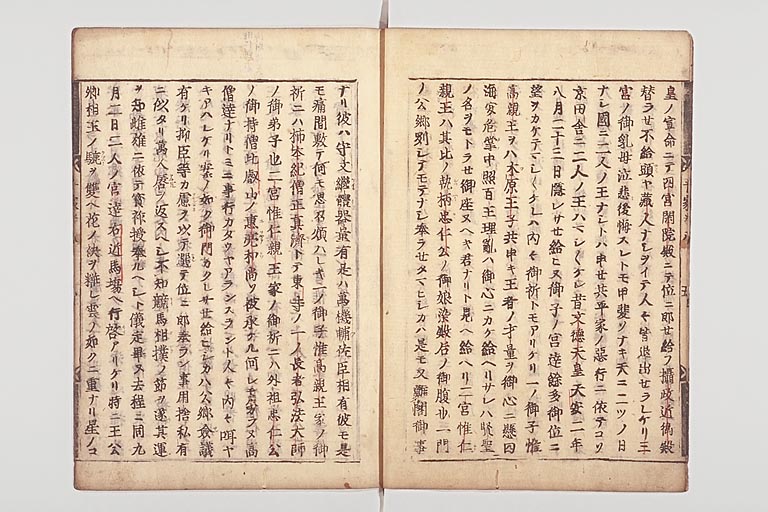 皇ノ宣命ニテ四宮閑院殿ニテ位ニ即セ給フ攝政近衛殿
替ラせ不給頭ヤ蔵人ナシヲイテ人々皆退出せラレケリ三
宮ノ御乳母泣悲後悔スレトモ甲斐ソナキ天ニ二ツノ日
ナシ國ニ二人ノ王ナシトハ申せ共平家ノ悪行ニ依テコソ
京田舎ニ二人ノ王ハマシ〱ケレ昔文徳天皇天安二年
八月二十三日隠レサせ給ヒヌ御子ノ宮達餘多御位ニ
望ヲカケテマシ〱ケレハ内々御祈トモアリケリ一ノ御子惟
高親王ヲハ木原王子共申キ王者ノ才量ヲ御心ニ懸四
海安危掌中照百王理乱ハ御心ニカケ給ヘリサレハ賢聖
ノ名ヲモトラせ御座ヌヘキ君ナリト見ヘ給ヘリ二宮惟仁
親王ハ其比ノ執柄忠仁公ノ御娘染殿后ノ御腹也一門
ノ公卿列シテモテナシ奉ラせタマヒシカハ是モ又難閣御事
ナリ彼ハ守文継體器量有是ハ萬機輔佐臣相有彼モ是
モ痛間敷テ何モ思召煩ハレキ一ノ御子惟高親王家ノ御
祈ニハ柿本紀僧正真済トテ東寺ノ一ノ長者弘法大師
ノ御弟子也二宮惟仁親王家ノ御祈ニハ外祖忠仁公
ノ御持僧比叡山ノ恵亮和尚ソ被承ケル何レモヲトラヌ高
僧達ナリトミニ事行カタウヤアランスラント人々内々咡ヤ
キアハレケリ案ノ如ク御門カクレサせ給ヒシカハ公卿僉議
有ケリ抑臣等カ慮ヲ以テ選テ位ニ即奉ラン事用捨私有
ニ似タリ萬人唇ヲ返スヘシ不知競馬相撲ノ節ヲ遂其運
ヲ知雌雄ニ依テ寳祚授奉ルヘシト儀定畢ヌ去程ニ同九
月二日二人ノ宮達右近馬場ヘ行啓アリケリ時ニ王公
卿相玉ノ轡ヲ雙ヘ花ノ袂ヲ粧し雲ノ如ク二重ナリ星ノコ